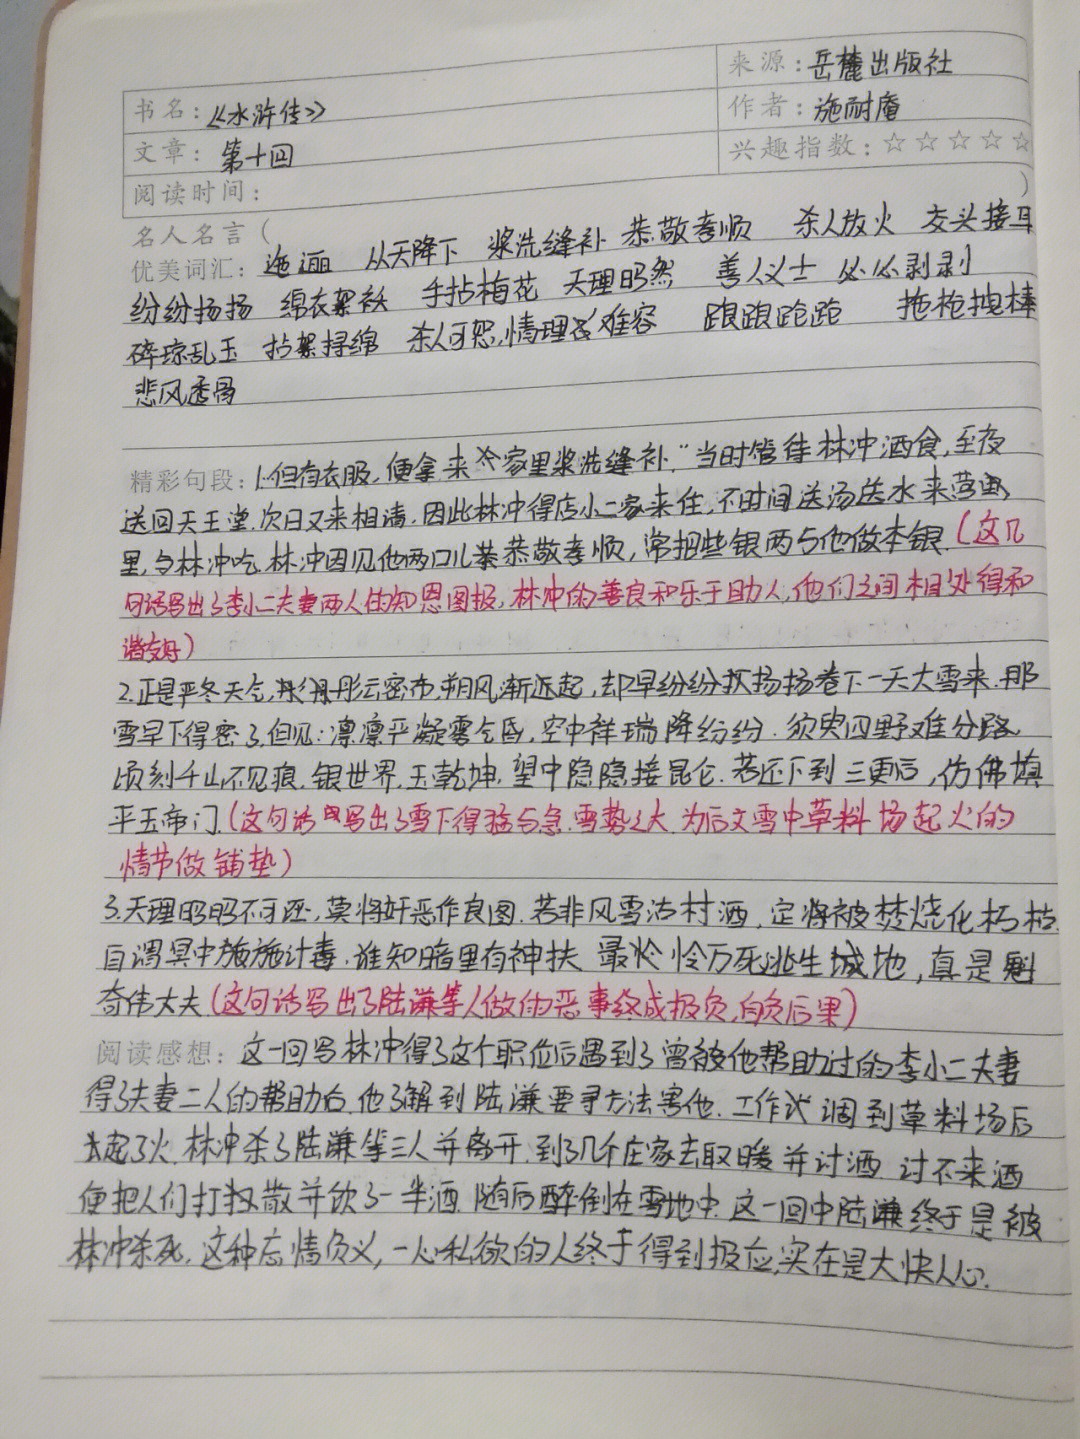 来源：岳麓出版社
书名：《水浒传》
作者：施耐庵
文章：第十回
兴趣指数：☆☆☆☆☆
阅读时间：
名人名言（ ）
优美词汇：迤逦 从天降下 浆洗缝补 恭敬孝顺 杀人放火 交头接耳
纷纷扬扬 绵衣絮袄 手拈梅花 天理昭然 善人义士 必必剥剥
碎琼乱玉 拈絮挦绵 杀人可恕,情理难容 踉踉跄跄 拖枪拽棒
悲风透骨
精彩句段：1.但有衣服,便拿来家里浆洗缝补."当时管待林冲酒食,至夜
送回天王堂.次日又来相请.因此林冲得店小二家来住,不时间送汤送水来营
里,与林冲吃.林冲因见他两口儿恭敬孝顺,常把些银两与他做本银.(这几
句话写出了李小二夫妻两人的知恩图报,林冲的善良和乐于助人,他们之间相处得和
谐友好)
2.正是严冬天气,彤云密布,朔风渐起,却早纷纷扬扬卷下一天大雪来.那
雪早下得密了.但见:凛凛严凝雾气昏,空中祥瑞降纷纷.须臾四野难分路,
顷刻千山不见痕.银世界,玉乾坤.望中隐隐接昆仑.若还下到三更后,仿佛填
平玉帝门.(这句话写出了雪下得猛与急.雪势之大,为后文雪中草料场起火的
情节做铺垫)
3.天理昭昭不可诬,莫将奸恶作良图.若非风雪沽村酒,定将被焚烧化朽枯.
自谓冥中施计毒.谁知暗里有神扶 最怜万死逃生地,真是魁
奇伟大夫(这句话写出了陆谦等人做的恶事终成报负,自负后果)
阅读感想：这一回写林冲得了这个职位后遇到了曾被他帮助过的李小二夫妻
得了夫妻二人的帮助后.他了解到陆谦要寻方法害他.工作 调到草料场后
起了火.林冲杀了陆谦等三人并离开.到了几个庄家去取暖并讨酒.讨不来酒
便把人们打散并饮了一半酒.随后醉倒在雪地中.这一回中陆谦终于是被
林冲杀死.这种忘情负义,一心私欲的人终于得到报应,实在是大快人心.